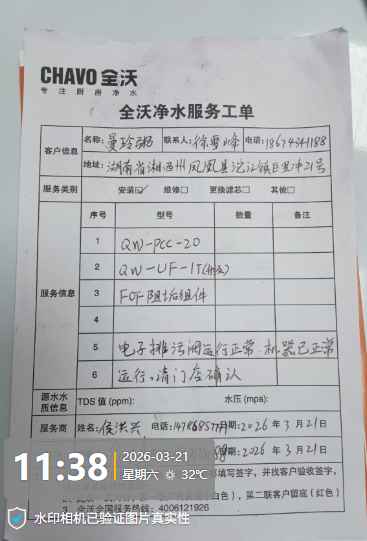 CHAVO 全沃
专注厨房净水
全沃净水服务工单
客户信息
名称: 曼玲粥 联系人: 徐雪峰 电话: 18674341188
地址: 湖南省湘西州凤凰县沱江镇巨里冲21号
服务类别 安装☑ 维修□ 更换滤芯□ 其他□
服务信息
序号 型号 数量 备注
1 QW-PCC-20
2 QW-UF-1T
3 FOF阻垢组件
4
5 电子排污阀运行正常.机器已正常
6 运行.请门店确认
源水水质信息 TDS 值 (ppm): 水压 (mpa):
服务商 姓名: 侯洪兴 电话: 日期: 2026年3月21日
2026年3月21日
11:38
2026-03-21
星期六 32℃
要填写签字，并找客户验收签字，
白色），第二联客户留底 (红色)
3、全沃全国服务热线: 4006121926
水印相机已验证图片真实性